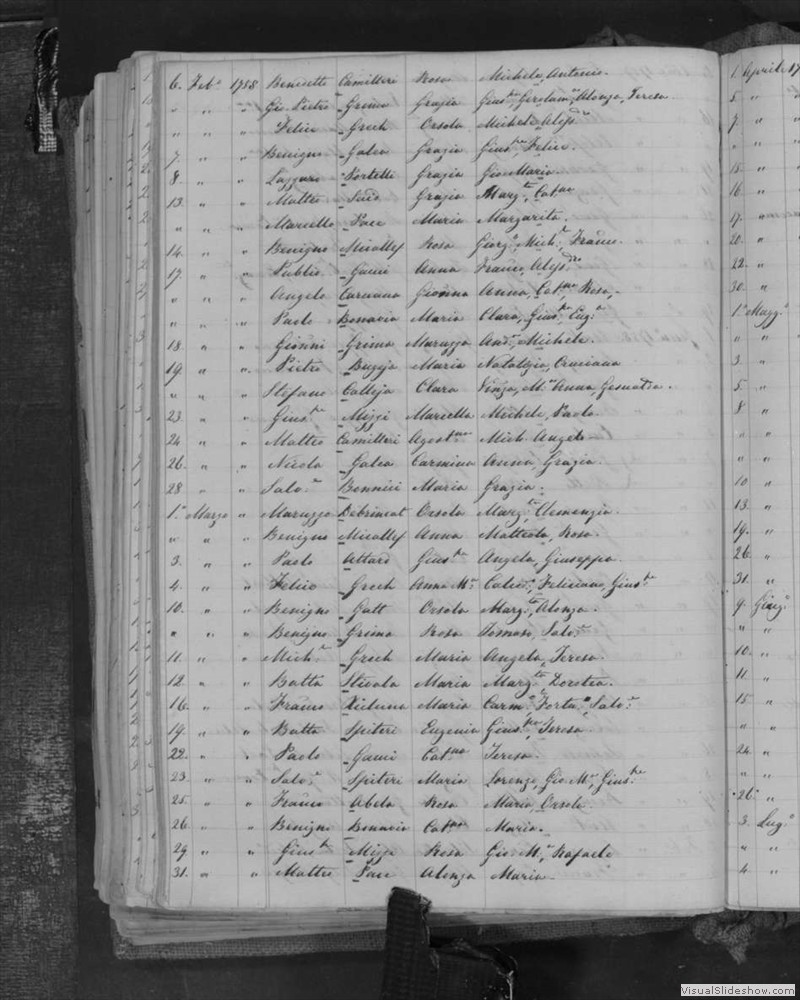 6. Feb.o 1758 Benedetto Camilleri Rosa Michele, Antonio.
" " " Gio. Pietro Grima Grazia Gius.e, Gerolam.o, Alonza, Teresa
" " " Felice Grech Orsola Michele, Aless.dro
7. " " Benigno Galea Grazia Gius.e, Felice.
8. " " Lazzaro Portelli Grazia Gio Maria.
13. " " Matteo Grazia Marg.ta, Cat.na
" " " Marcello Pace Maria Margarita.
14. " " Benigno Micallef Rosa Giorg.o, Mich.e, Franc.o
17. " " Publio Gauci Anna Franc.o, Aless.dro
" " " Angelo Caruana Gionna Anna, Cat.na, Rosa,
" " " Paolo Bonavia Maria Clara, Gius.e, Eug.a
18. " " Gionni Grima Maruzza And.a, Michele.
19. " " Pietro Bugeja Maria Natalizia, Cruciana
" " " Stefano Calleja Clara Vinza, M.a Anna, Gesualda.
23. " " Gius.e Mizzi Marcella Michele, Paolo
24. " " Matteo Camilleri Agost.na Mich. Angelo
26. " " Nicola Galea Carmina Anna Grazia.
28. " " Salv.e Bonnici Maria Grazia.
1.o Marzo " Maruzzo Debrincat Orsola Marg.ta, Clemenzia.
" " " Benigno Micallef Anna Matteola, Rosa.
3. " " Paolo Attard Gius.a Angela, Giuseppa.
4. " " Felice Grech Anna M.a Feliciano, Gius.e
10. " " Benigno Gatt Orsola Marg.ta, Alonza.
" " Benigno Grima Rosa Tomaso, Salv.e
11. " Mich.e Grech Maria Angela, Teresa.
12. " " Batta Sticala Maria Marg.ta Dorotea.
16. " " Franc.o Xicluna Maria Carm.o, Fortu.o, Salv.e
19. " " Batta Spiteri Eugenia Gius.a, Teresa.
22. " " Paolo Gauci Cat.na Teresa.
23. " " Salv.e Spiteri Maria Lorenzo, Gio M.a, Gius.e
25. " " Franc.o Abela Rosa Maria, Orsola.
26. " " Benigno Bonavia Cat.na Maria.
29. " " Gius.e Mizzi Rosa Gio. M.a, Rafaele
31. " " Matteo Pace Alonza Maria.
1. Aprile 17
5 "
7 "
" "
15. "
16 "
17. "
20. "
22. "
30. "
1.o Magg.o
" "
3. "
5. "
8 "
" "
" "
10 "
13. "
19. "
26. "
31. "
9. Giug.o
" "
10. "
11. "
15 "
" "
24. "
" "
26. "
3. Lug.o
" "
4 "
VisualSlideshow.com